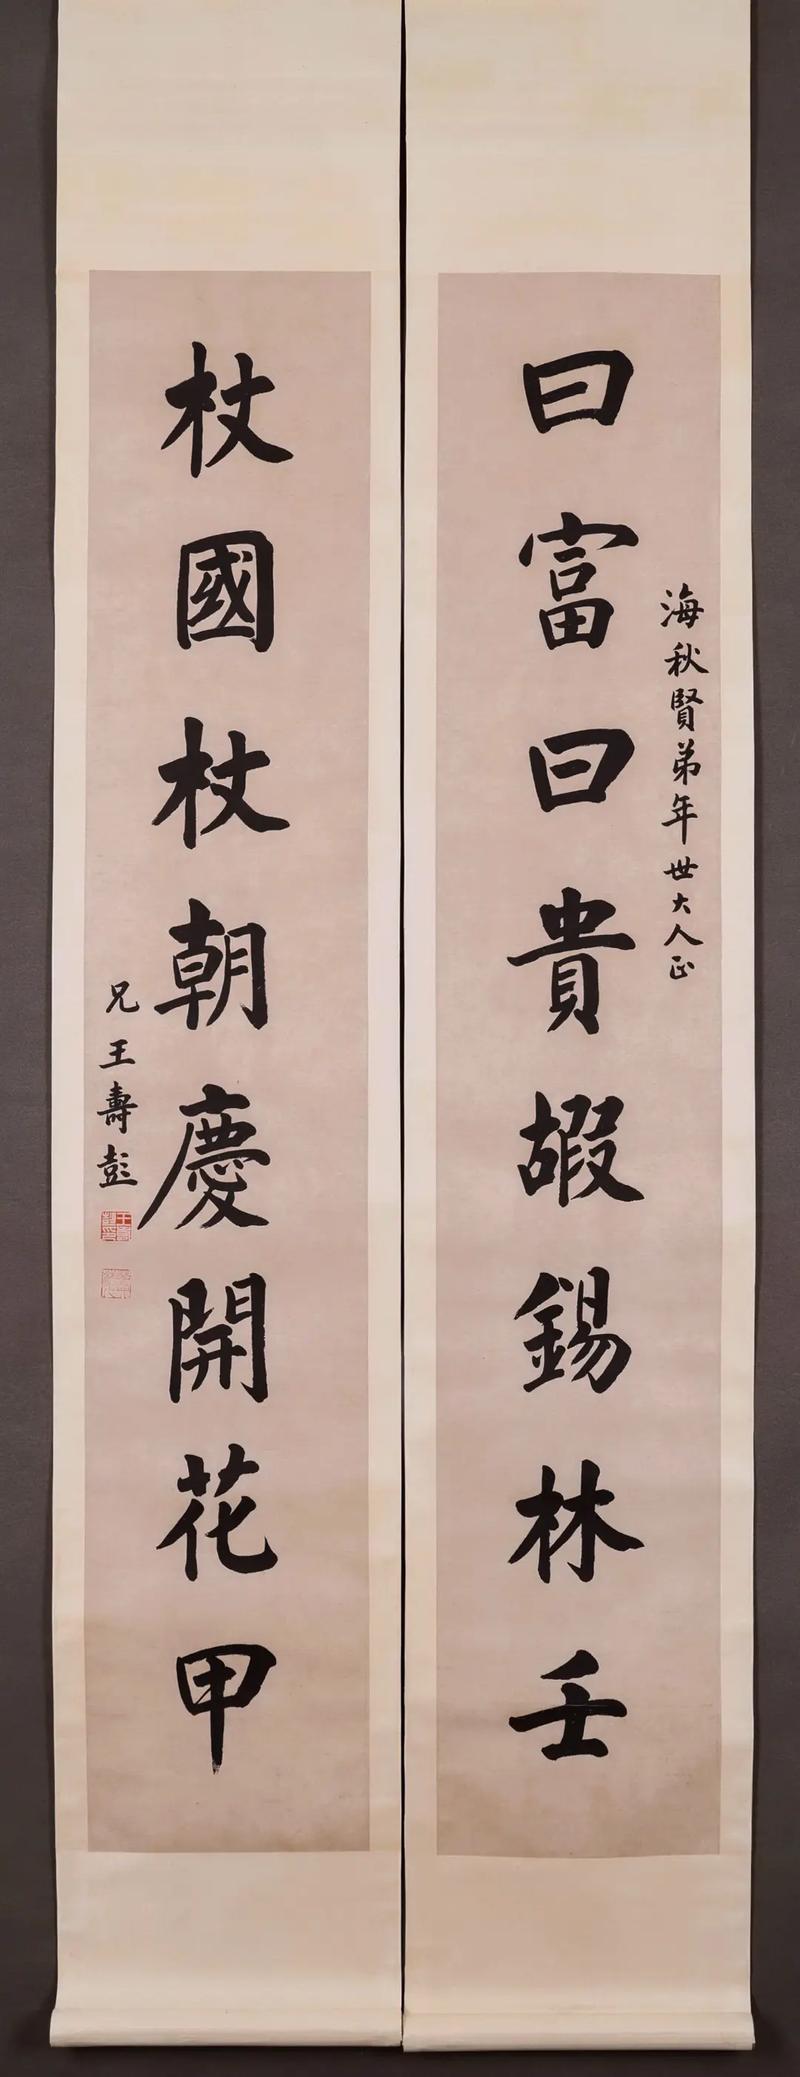 海秋賢弟年世大人正
曰富曰貴嘏錫林壬
杖國杖朝慶開花甲
兄王壽彭